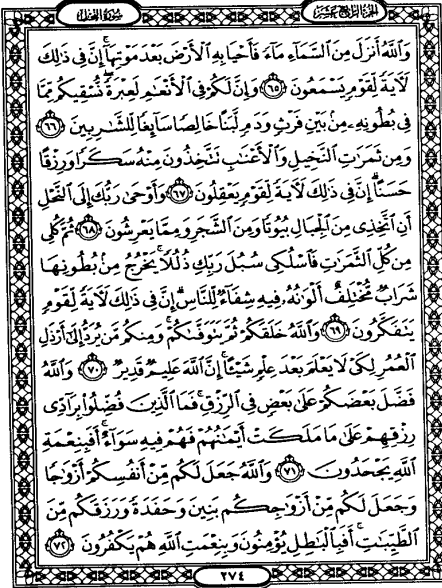 الجزء الرابع عشر
سورة النحل
وَٱللَّهُ أَنزَلَ مِنَ ٱلسَّمَآءِ مَآءً فَأَحْيَا بِهِ ٱلْأَرْضَ بَعْدَ مَوْتِهَآ إِنَّ فِي ذَٰلِكَ
لَآيَةً لِّقَوْمٍ يَسْمَعُونَ ٦٥ وَإِنَّ لَكُمْ فِي ٱلْأَنْعَٰمِ لَعِبْرَةً نُّسْقِيكُم مِّمَّا
فِي بُطُونِهِۦ مِنۢ بَيْنِ فَرْثٍ وَدَمٍ لَّبَنًا خَالِصًا سَآئِغًا لِّلشَّٰرِبِينَ ٦٦
وَمِن ثَمَرَٰتِ ٱلنَّخِيلِ وَٱلْأَعْنَٰبِ تَتَّخِذُونَ مِنْهُ سَكَرًا وَرِزْقًا
حَسَنًا إِنَّ فِي ذَٰلِكَ لَآيَةً لِّقَوْمٍ يَعْقِلُونَ ٦٧ وَأَوْحَىٰ رَبُّكَ إِلَى ٱلنَّحْلِ
أَنِ ٱتَّخِذِي مِنَ ٱلْجِبَالِ بُيُوتًا وَمِنَ ٱلشَّجَرِ وَمِمَّا يَعْرِشُونَ ٦٨ ثُمَّ كُلِي
مِن كُلِّ ٱلثَّمَرَٰتِ فَٱسْلُكِي سُبُلَ رَبِّكِ ذُلُلًا يَخْرُجُ مِنۢ بُطُونِهَا
شَرَابٌ مُّخْتَلِفٌ أَلْوَٰنُهُۥ فِيهِ شِفَآءٌ لِّلنَّاسِ إِنَّ فِي ذَٰلِكَ لَآيَةً لِّقَوْمٍ
يَتَفَكَّرُونَ ٦٩ وَٱللَّهُ خَلَقَكُمْ ثُمَّ يَتَوَفَّىٰكُمْ وَمِنكُم مَّن يُرَدُّ إِلَىٰٓ أَرْذَلِ
ٱلْعُمُرِ لِكَيْ لَا يَعْلَمَ بَعْدَ عِلْمٍ شَيْـًٔا إِنَّ ٱللَّهَ عَلِيمٌ قَدِيرٌ ٧٠ وَٱللَّهُ
فَضَّلَ بَعْضَكُمْ عَلَىٰ بَعْضٍ فِي ٱلرِّزْقِ فَمَا ٱلَّذِينَ فُضِّلُوا۟ بِرَآدِّي
رِزْقِهِمْ عَلَىٰ مَا مَلَكَتْ أَيْمَٰنُهُمْ فَهُمْ فِيهِ سَوَآءٌ أَفَبِنِعْمَةِ
ٱللَّهِ يَجْحَدُونَ ٧١ وَٱللَّهُ جَعَلَ لَكُم مِّنْ أَنفُسِكُمْ أَزْوَٰجًا
وَجَعَلَ لَكُم مِّنْ أَزْوَٰجِكُم بَنِينَ وَحَفَدَةً وَرَزَقَكُم مِّنَ
ٱلطَّيِّبَٰتِ أَفَبِٱلْبَٰطِلِ يُؤْمِنُونَ وَبِنِعْمَتِ ٱللَّهِ هُمْ يَكْفُرُونَ ٧٢
٢٧٤